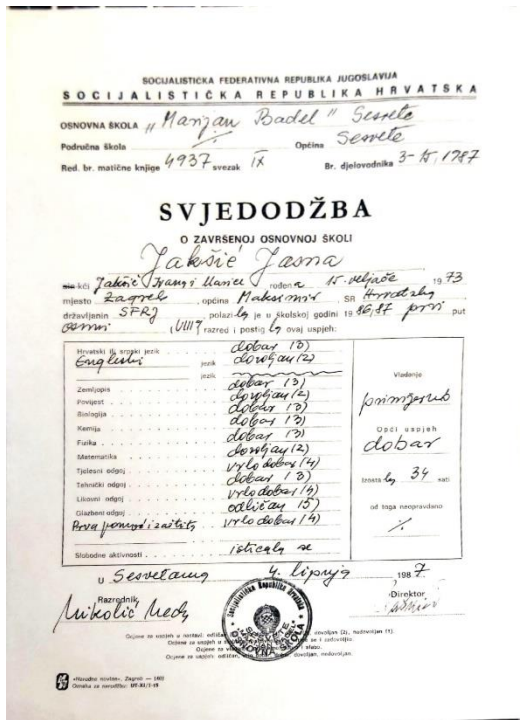 SOCIJALISTIČKA FEDERATIVNA REPUBLIKA JUGOSLAVIJA
SOCIJALISTIČKA REPUBLIKA HRVATSKA
OSNOVNA ŠKOLA "Marijan Badel" Sesvete
Područna škola ./. Općina Sesvete
Red. br. matične knjige 4937 svezak IX Br. djelovodnika 3-15, 1987
SVJEDODŽBA
O ZAVRŠENOJ OSNOVNOJ ŠKOLI
Jakšić Jasna
kći Jakšić Ivan i Marice rođena 15. veljače 1973
mjesto Zagreb, općina Maksimir, SR Hrvatska
državljanin SFRJ polazila je u školskoj godini 1986/87 prvi put
osmi (VIII) razred i postigla ovaj uspjeh:
Hrvatski ili srpski jezik dobar (3)
Engleski jezik dovoljan (2)
jezik
Zemljopis dobar (3)
Povijest dovoljan (2)
Biologija dobar (3)
Kemija dobar (3)
Fizika dobar (3)
Matematika dovoljan (2)
Tjelesni odgoj vrlo dobar (4)
Tehnički odgoj dobar (3)
Likovni odgoj vrlo dobar (4)
Glazbeni odgoj odličan (5)
Prva pomoć i zaštita vrlo dobar (4)
Slobodne aktivnosti isticala se
Vladanje
primjerno
Opći uspjeh
dobar
Izostala 34 sati
od toga neopravdano
./.
U Sesvetama 4. lipnja 1987.
Razrednik,
Direktor
Socijalistička Republika Hrvatska
SESVETE
OSNOVNA ŠKOLA
Ocjene za uspjeh u nastavi: dovoljan (2), nedovoljan (1).
Ocjene za uspjeh u
Ocjene za
Ocjene za uspjeh: dovoljan, nedovoljan.
«Narodne novine», Zagreb —
Oznaka za narudžbu: